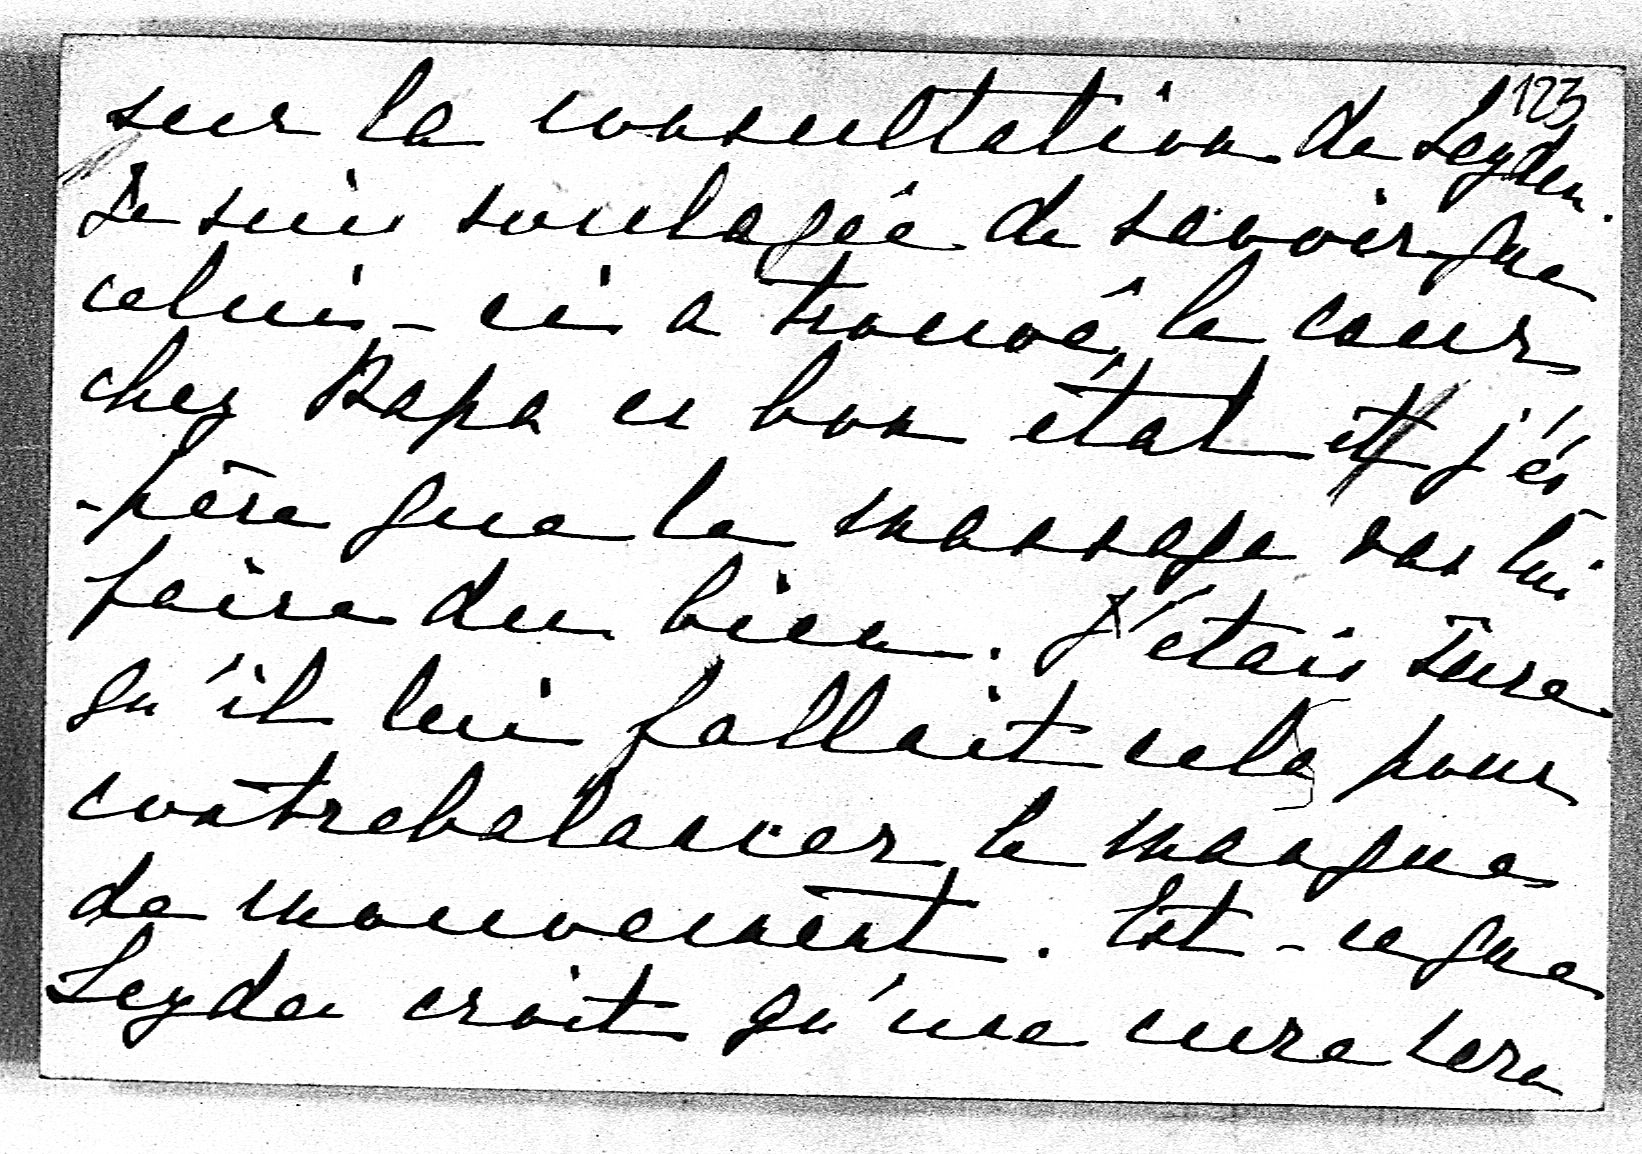 123
sur la consultation de Leyden.
Je suis soulagée de savoir que
celui-ci a trouvé le cœur
chez Papa en bon état et j'es
-père que le massage va lui
faire du bien. J'étais sûre
qu'il lui fallait cela pour
contrebalancer le manque
de mouvement. Est-ce que
Leyden croit qu'une cure sera